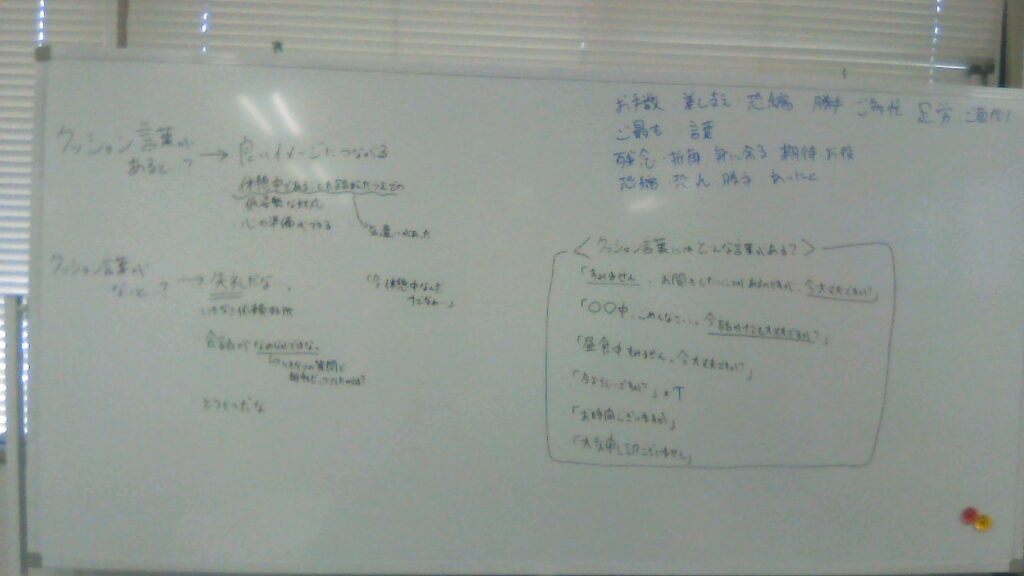 クッション言葉が
あると? → 良いイメージにつながる
休憩中であることを踏まえたうえでの
低姿勢な対応
心の準備ができる
気遣いがあった
クッション言葉が
ないと? → 失礼だな、
「今休憩中なんだ
けどなぁ」
会話がなめらかではない。
いきなりの質問で
とうとつだな
お手数 差し支え 恐縮 勝手 ご多忙 足労 ご面倒
ご最も 言葉
残念・折角 身に余る 期待 お役
恐縮・恐れ 勝手 あいにく
<クッション言葉にはどんな言葉がある?>
「すみません、お聞きしたいことがあるのですが、今大丈夫ですか?」
「〇〇中、ごめんなさい。今話かけても大丈夫ですか?」
「昼食中すみません。今大丈夫ですか?」
「今よろしいですか?」
「お時間ございますか」
「大変申し訳ございません」